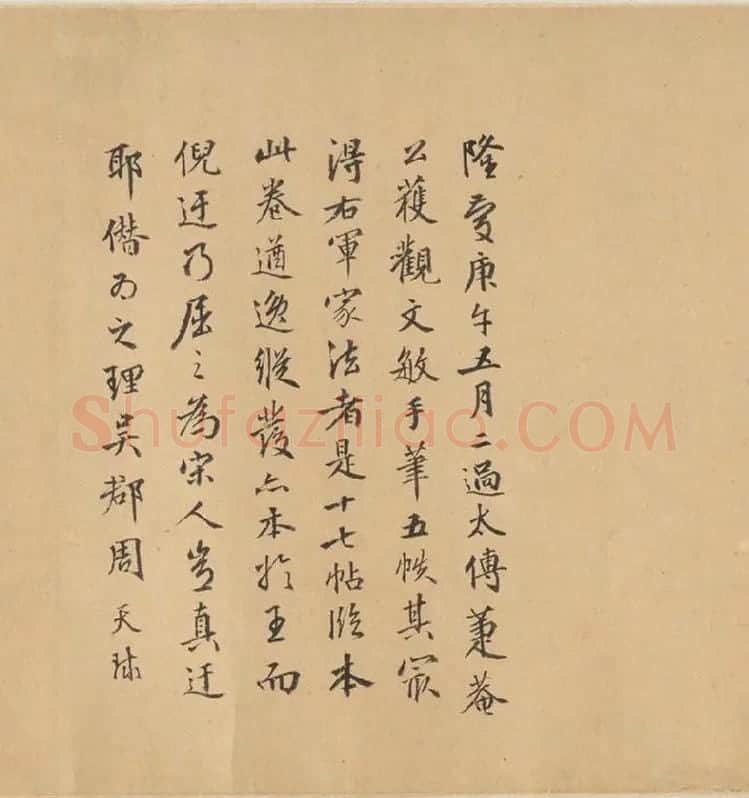 隆慶庚午五月二過太傅菴
公獲觀文敏手筆五帙其冣
得右軍家法者是十七帖臨本
此卷遒逸縱發亦本於王而
倪迂乃屈之為宋人豈真迂
耶僭為之理吳郡周天球